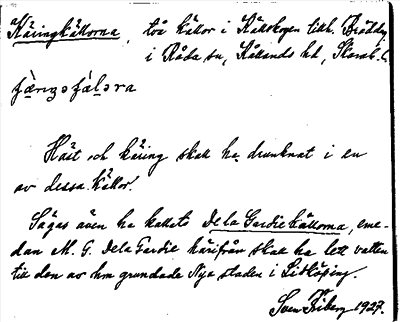 Käringkällorna, två källor i Råda sn, Kållands hd, Skarab. l.
Häst och käring skall ha drunknat i en
av dessa källor.
Sägas även ha kallats De la Gardiekällorna, eme-
dan M. G. De la Gardie härifrån skall ha lett vatten
till den av hm grundade Nya staden i Lidköping.
Sven Friberg 1927.